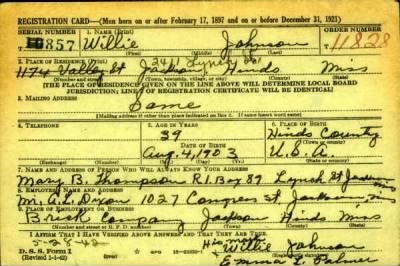 REGISTRATION CARD—(Men born on or after February 17, 1897 and on or before December 31, 1921)
SERIAL NUMBER 1. NAME (Print) ORDER NUMBER
857 Willie Johnson 11828
2. PLACE OF RESIDENCE (Print) 241 Lynch St
1174 Valley St Jackson Hinds Miss
(Number and street) (Town, township, village, or city) (County) (State)
[THE PLACE OF RESIDENCE GIVEN ON THE LINE ABOVE WILL DETERMINE LOCAL BOARD
JURISDICTION; LINE 2 OF REGISTRATION CERTIFICATE WILL BE IDENTICAL]
3. MAILING ADDRESS
Same
[Mailing address if other than place indicated on line 2. If same insert word same]
4. TELEPHONE 5. AGE IN YEARS 6. PLACE OF BIRTH
39 Hinds County
DATE OF BIRTH
Aug. 4, 1903 U.S.A.
(Exchange) (Number) (Mo.) (Day) (Yr.) (State or country)
7. NAME AND ADDRESS OF PERSON WHO WILL ALWAYS KNOW YOUR ADDRESS
Mary B. Thompson R.1. Box 87 Lynch St Jackson Miss
8. EMPLOYER'S NAME AND ADDRESS
Mr. A. L. Dixon 1027 Congress St, Jackson, Miss
9. PLACE OF EMPLOYMENT OR BUSINESS
Brick Company Jackson Hinds Miss
(Number and street or R. F. D. number) (Town) (County) (State)
I AFFIRM THAT I HAVE VERIFIED ABOVE ANSWERS AND THAT THEY ARE TRUE.
5-28-42 His
D. S. S. Form 1 Willie Johnson
(Revised 1-1-42) Emma L.